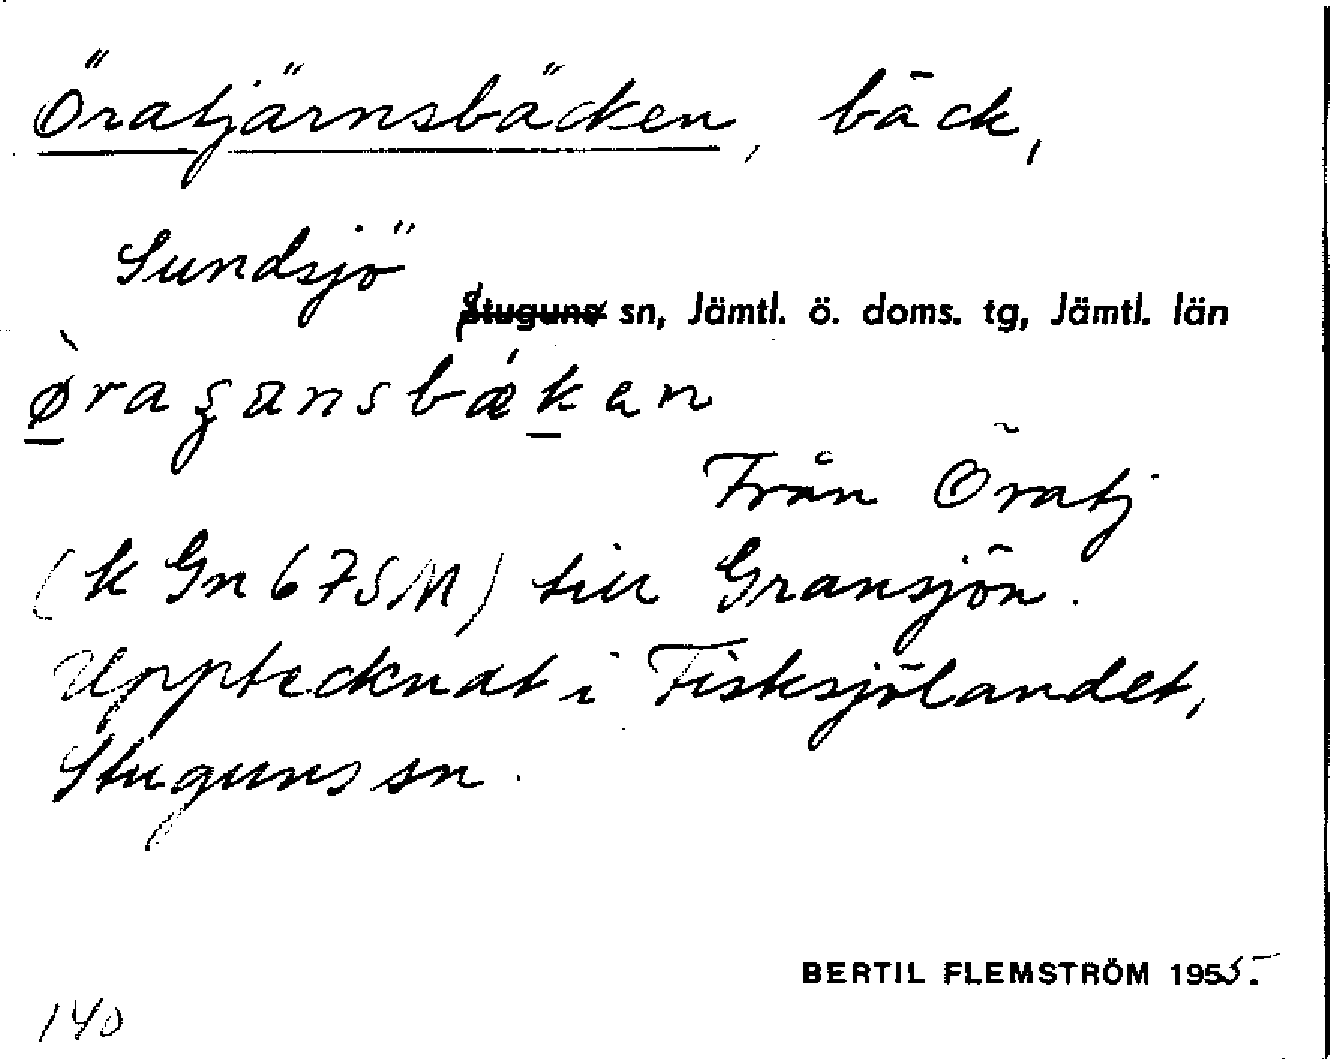 Öratjärnsbäcken, bäck,
Sundsjö
Stuguns sn, Jämtl. ö. doms. tg, Jämtl. län
Från Öratj
(k Gn 675M) till Gransjön.
Upptecknat i Fisksjölandet,
Stuguns sn.
BERTIL FLEMSTRÖM 1955.
140